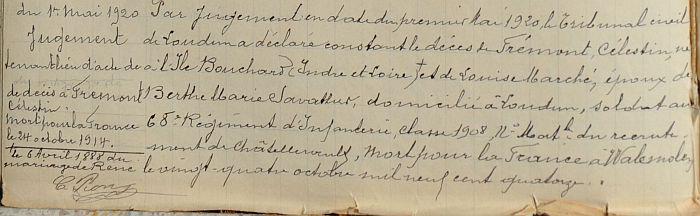 du 1er Mai 1920
Jugement
tenant lieu d'acte de
de décès de Frémont
Célestin.
Mort pour la France
le 24 octobre 1914.
Par Jugement en date du premier Mai 1920, le Tribunal civil
de Loudun a déclaré constant le décès de Frémont, Célestin, né
à l'Ile Bouchard (Indre et Loire) † et de Louise Marché, époux de
Berthe Marie Savatier, domicilié à Loudun, soldat au
68e Régiment d'Infanterie, classe 1908, No Matle du recrute
ment de Châtellerault, Mort pour la France à
le vingt-quatre octobre mil neuf cent quatorze.
le 6 Avril 1888 du
mariage de René